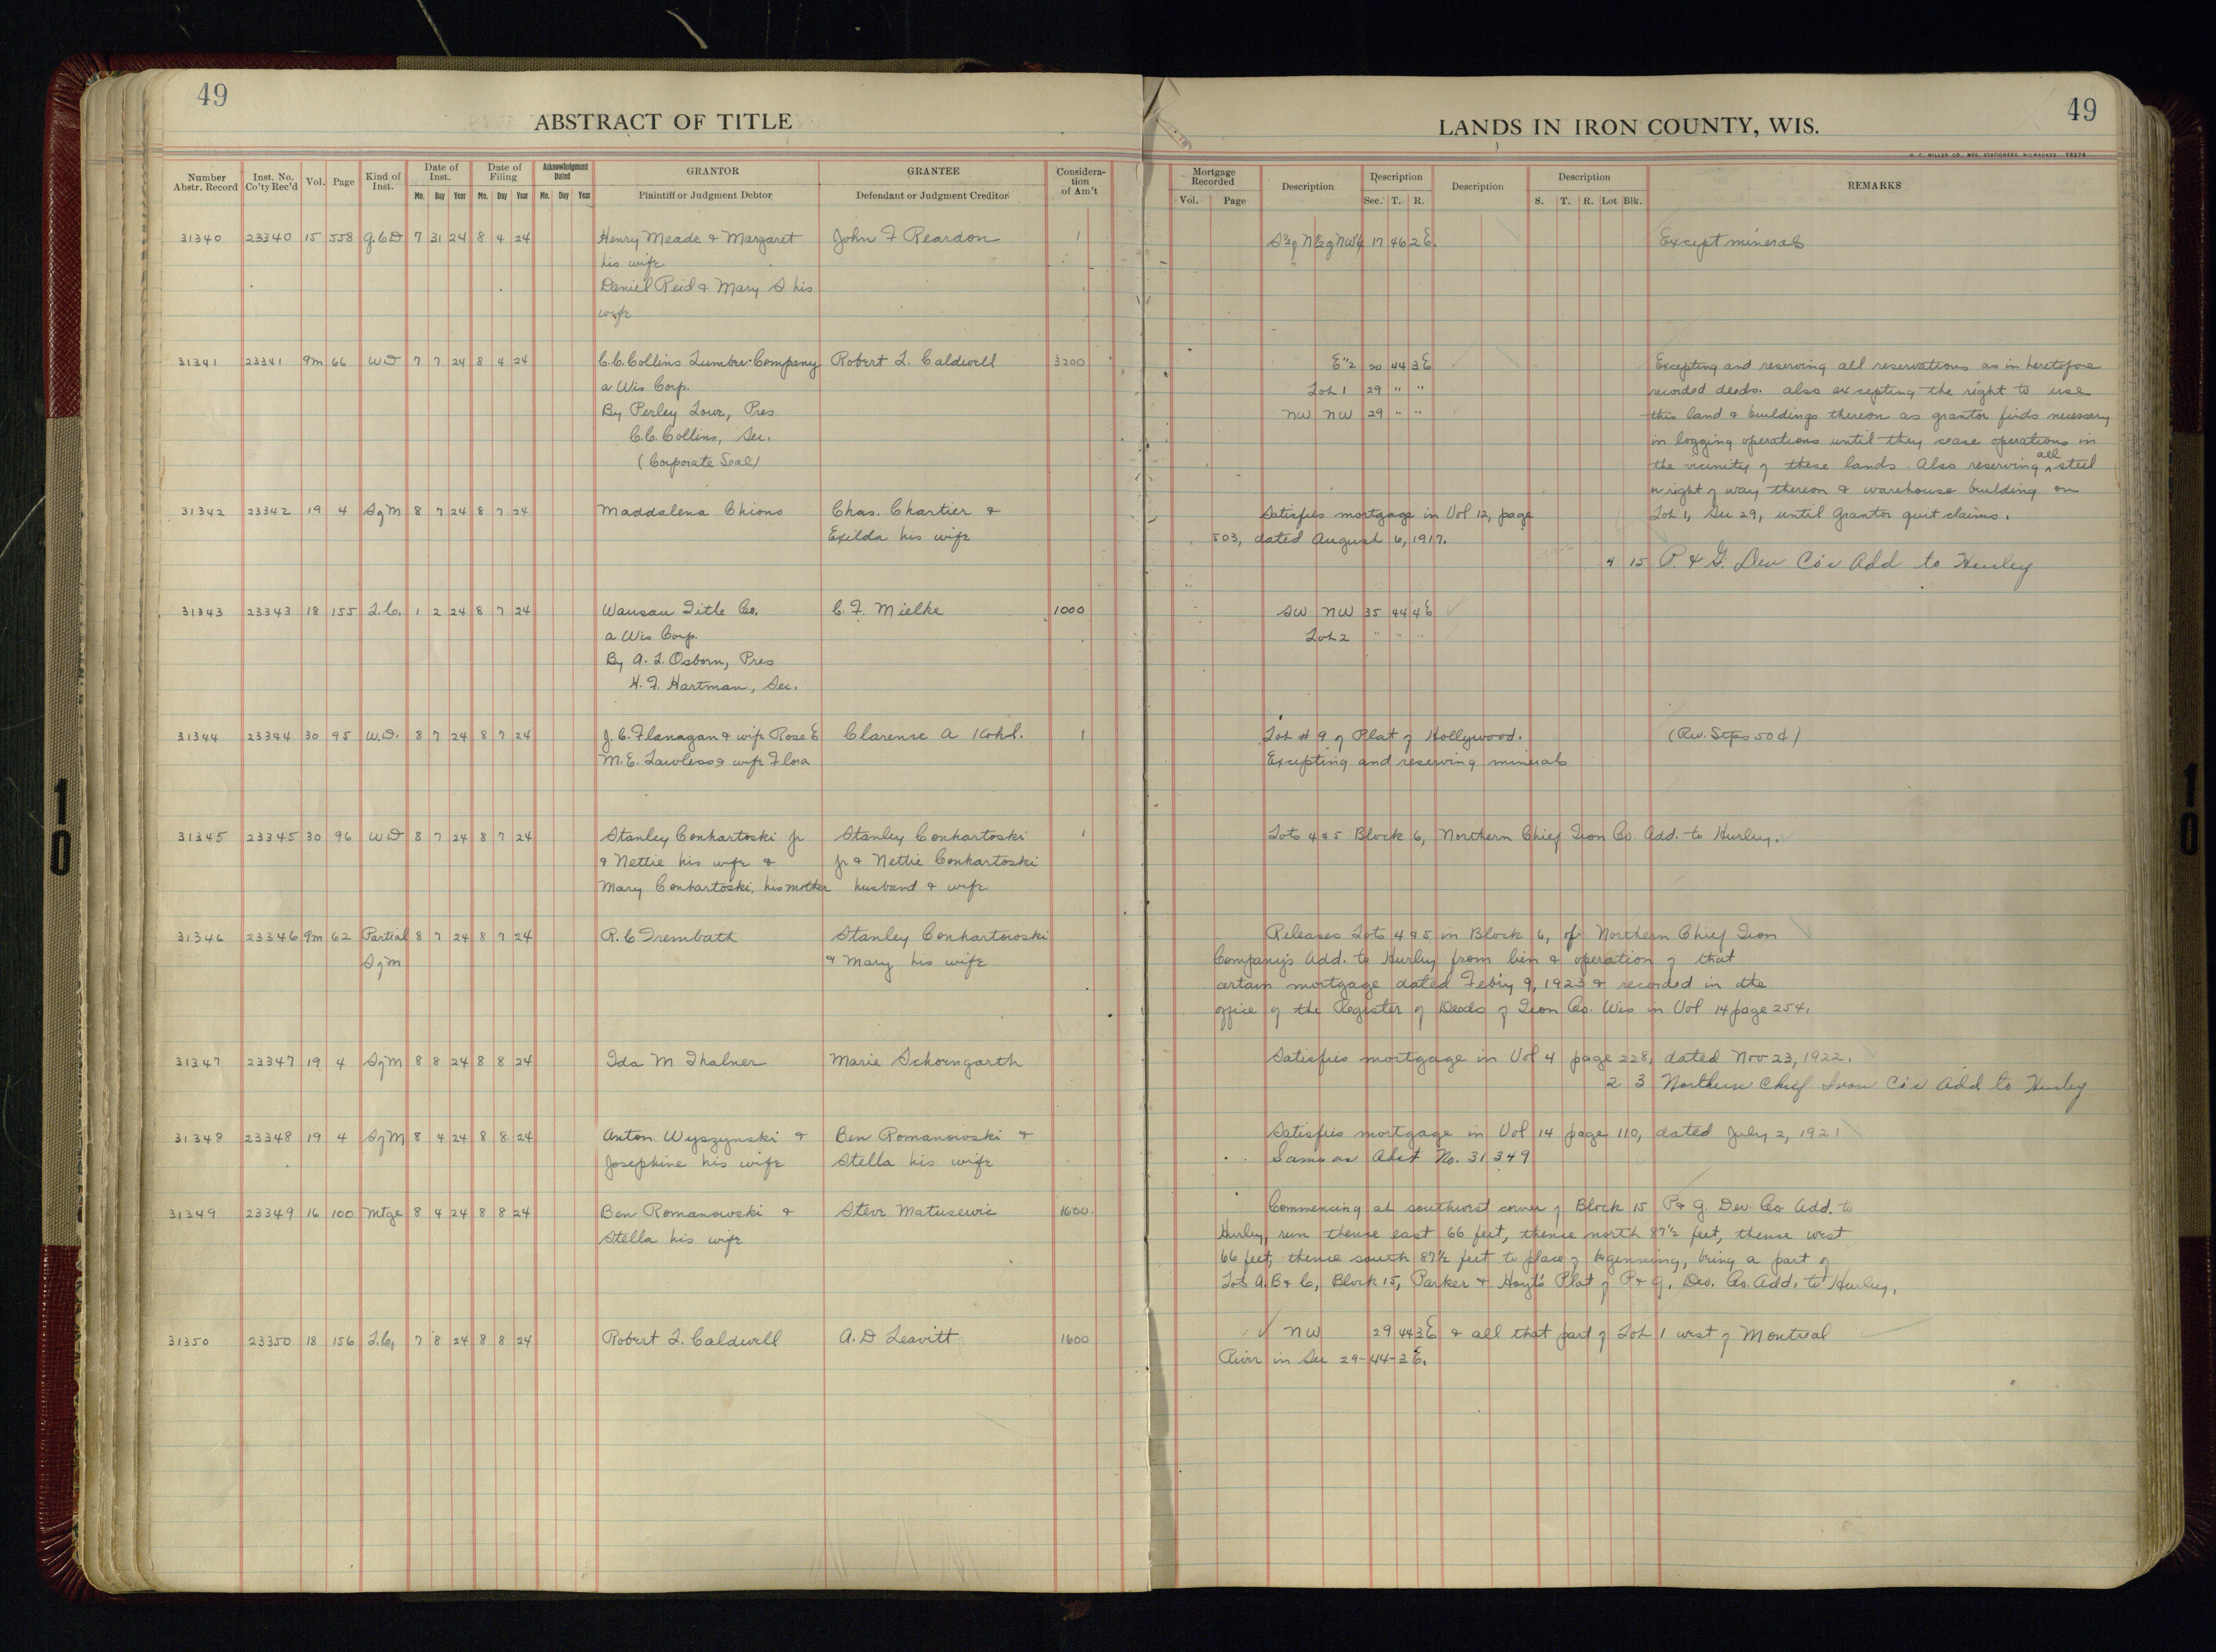 49
ABSTRACT OF TITLE
Number Abstr. Record Inst. No. Co'ty Rec'd Vol. Page Kind of Inst. Date of Inst. Date of Filing Acknowledgment Dated GRANTOR GRANTEE Considera-tion of Am't
Mo. Day Year Mo. Day Year Mo. Day Year Plaintiff or Judgment Debtor Defendant or Judgment Creditor
31340 23340 15 558 Q.C.D 7 31 24 8 4 24 Henry Meade & Margaret John F Reardon 1
his wife
Daniel Reid & Mary S his
wife
31341 23341 9m 66 WD 7 7 24 8 4 24 C.C. Collins Lumber Company Robert L. Caldwell 3200
a Wis Corp.
By Perley Lowe, Pres
C.C. Collins, Sec.
(Corporate Seal)
31342 23342 19 4 SqM 8 7 24 8 7 24 Maddalena Chiono Chas. Chartier &
Exilda his wife
31343 23343 18 155 L.C. 1 2 24 8 7 24 Wausau Title Co. C. F. Mielke 1000
a Wis Corp.
By A. L. Osborn, Pres
H. F. Hartman, Sec.
31344 23344 30 95 W.D. 8 7 24 8 7 24 J.C. Flanagan & wife Rose E Clarence A Kohl. 1
M.E. Lawless & wife Flora
31345 23345 30 96 WD 8 7 24 8 7 24 Stanley Conhartoski Jr Stanley Conhartoski 1
& Nettie his wife & Jr & Nettie Conhartoski
Mary Conhartoski, his mother husband & wife
31346 23346 9m 62 Partial 8 7 24 8 7 24 R. C Trembath Stanley Conhartowski
SqM & Mary his wife
31347 23347 19 4 SqM 8 8 24 8 8 24 Ida M Thalner Marie Schoengarth
31348 23348 19 4 SqM 8 4 24 8 8 24 Anton Wyszynski & Ben Romanowski &
Josephine his wife Stella his wife
31349 23349 16 100 Mtge 8 4 24 8 8 24 Ben Romanowski & Steve Matusewic 1600
Stella his wife
31350 23350 18 156 L.C. 7 8 24 8 8 24 Robert L. Caldwell A. D Leavitt 1600
49
LANDS IN IRON COUNTY, WIS.
H. C. MILLER CO., MFG. STATIONERS, MILWAUKEE
Mortgage Recorded Description Description Description Description REMARKS
Vol. Page Sec. T. R. S. T. R. Lot Blk.
S½ of N½ of NW¼ 17 46 2E. Except minerals
E½ 20 44 3E Excepting and reserving all reservations as in heretofore
Lot 1 29 " " recorded deeds. also excepting the right to use
NW NW 29 " " this land & buildings thereon as grantor finds necessary
in logging operations until they cease operations in
the vicinity of these lands. Also reserving all steel
& right of way thereon & warehouse building on
Lot 1, Sec 29, until grantor quit claims.
Satisfies mortgage in Vol 12, page
503, dated August 6, 1917.
4 15 P. & G. Dev Co's Add to Hurley
SW NW 35 44 4E
Lot 2 " " "
Lot # 9 of Plat of Hollywood. (Rev. Stps 50¢)
Excepting and reserving minerals
Lots 4 & 5 Block 6, Northern Chief Iron Co Add. to Hurley.
Releases Lots 4 & 5 in Block 6, of Northern Chief Iron
Company's Add. to Hurley from lien & operation of that
certain mortgage dated Feb'y 9, 1923 & recorded in the
office of the Register of Deeds of Iron Co. Wis in Vol 14 page 254.
Satisfies mortgage in Vol 4 page 228, dated Nov 23, 1922.
2 3 Northern Chief Iron Co's Add to Hurley
Satisfies mortgage in Vol 14 page 110, dated July 2, 1921
Same as Abst No. 31349
Commencing at southwest corner of Block 15 P & G. Dev. Co. Add. to
Hurley, run thence east 66 feet, thence north 87½ feet, thence west
66 feet, thence south 87½ feet to place of beginning, being a part of
Lots A. B & C, Block 15, Parker & Hoyt's Plat of P & G. Dev. Co. Add. to Hurley.
NW 29 44 3E & all that part of Lot 1 west of Montreal
River in Sec 29-44-3E.
10
10